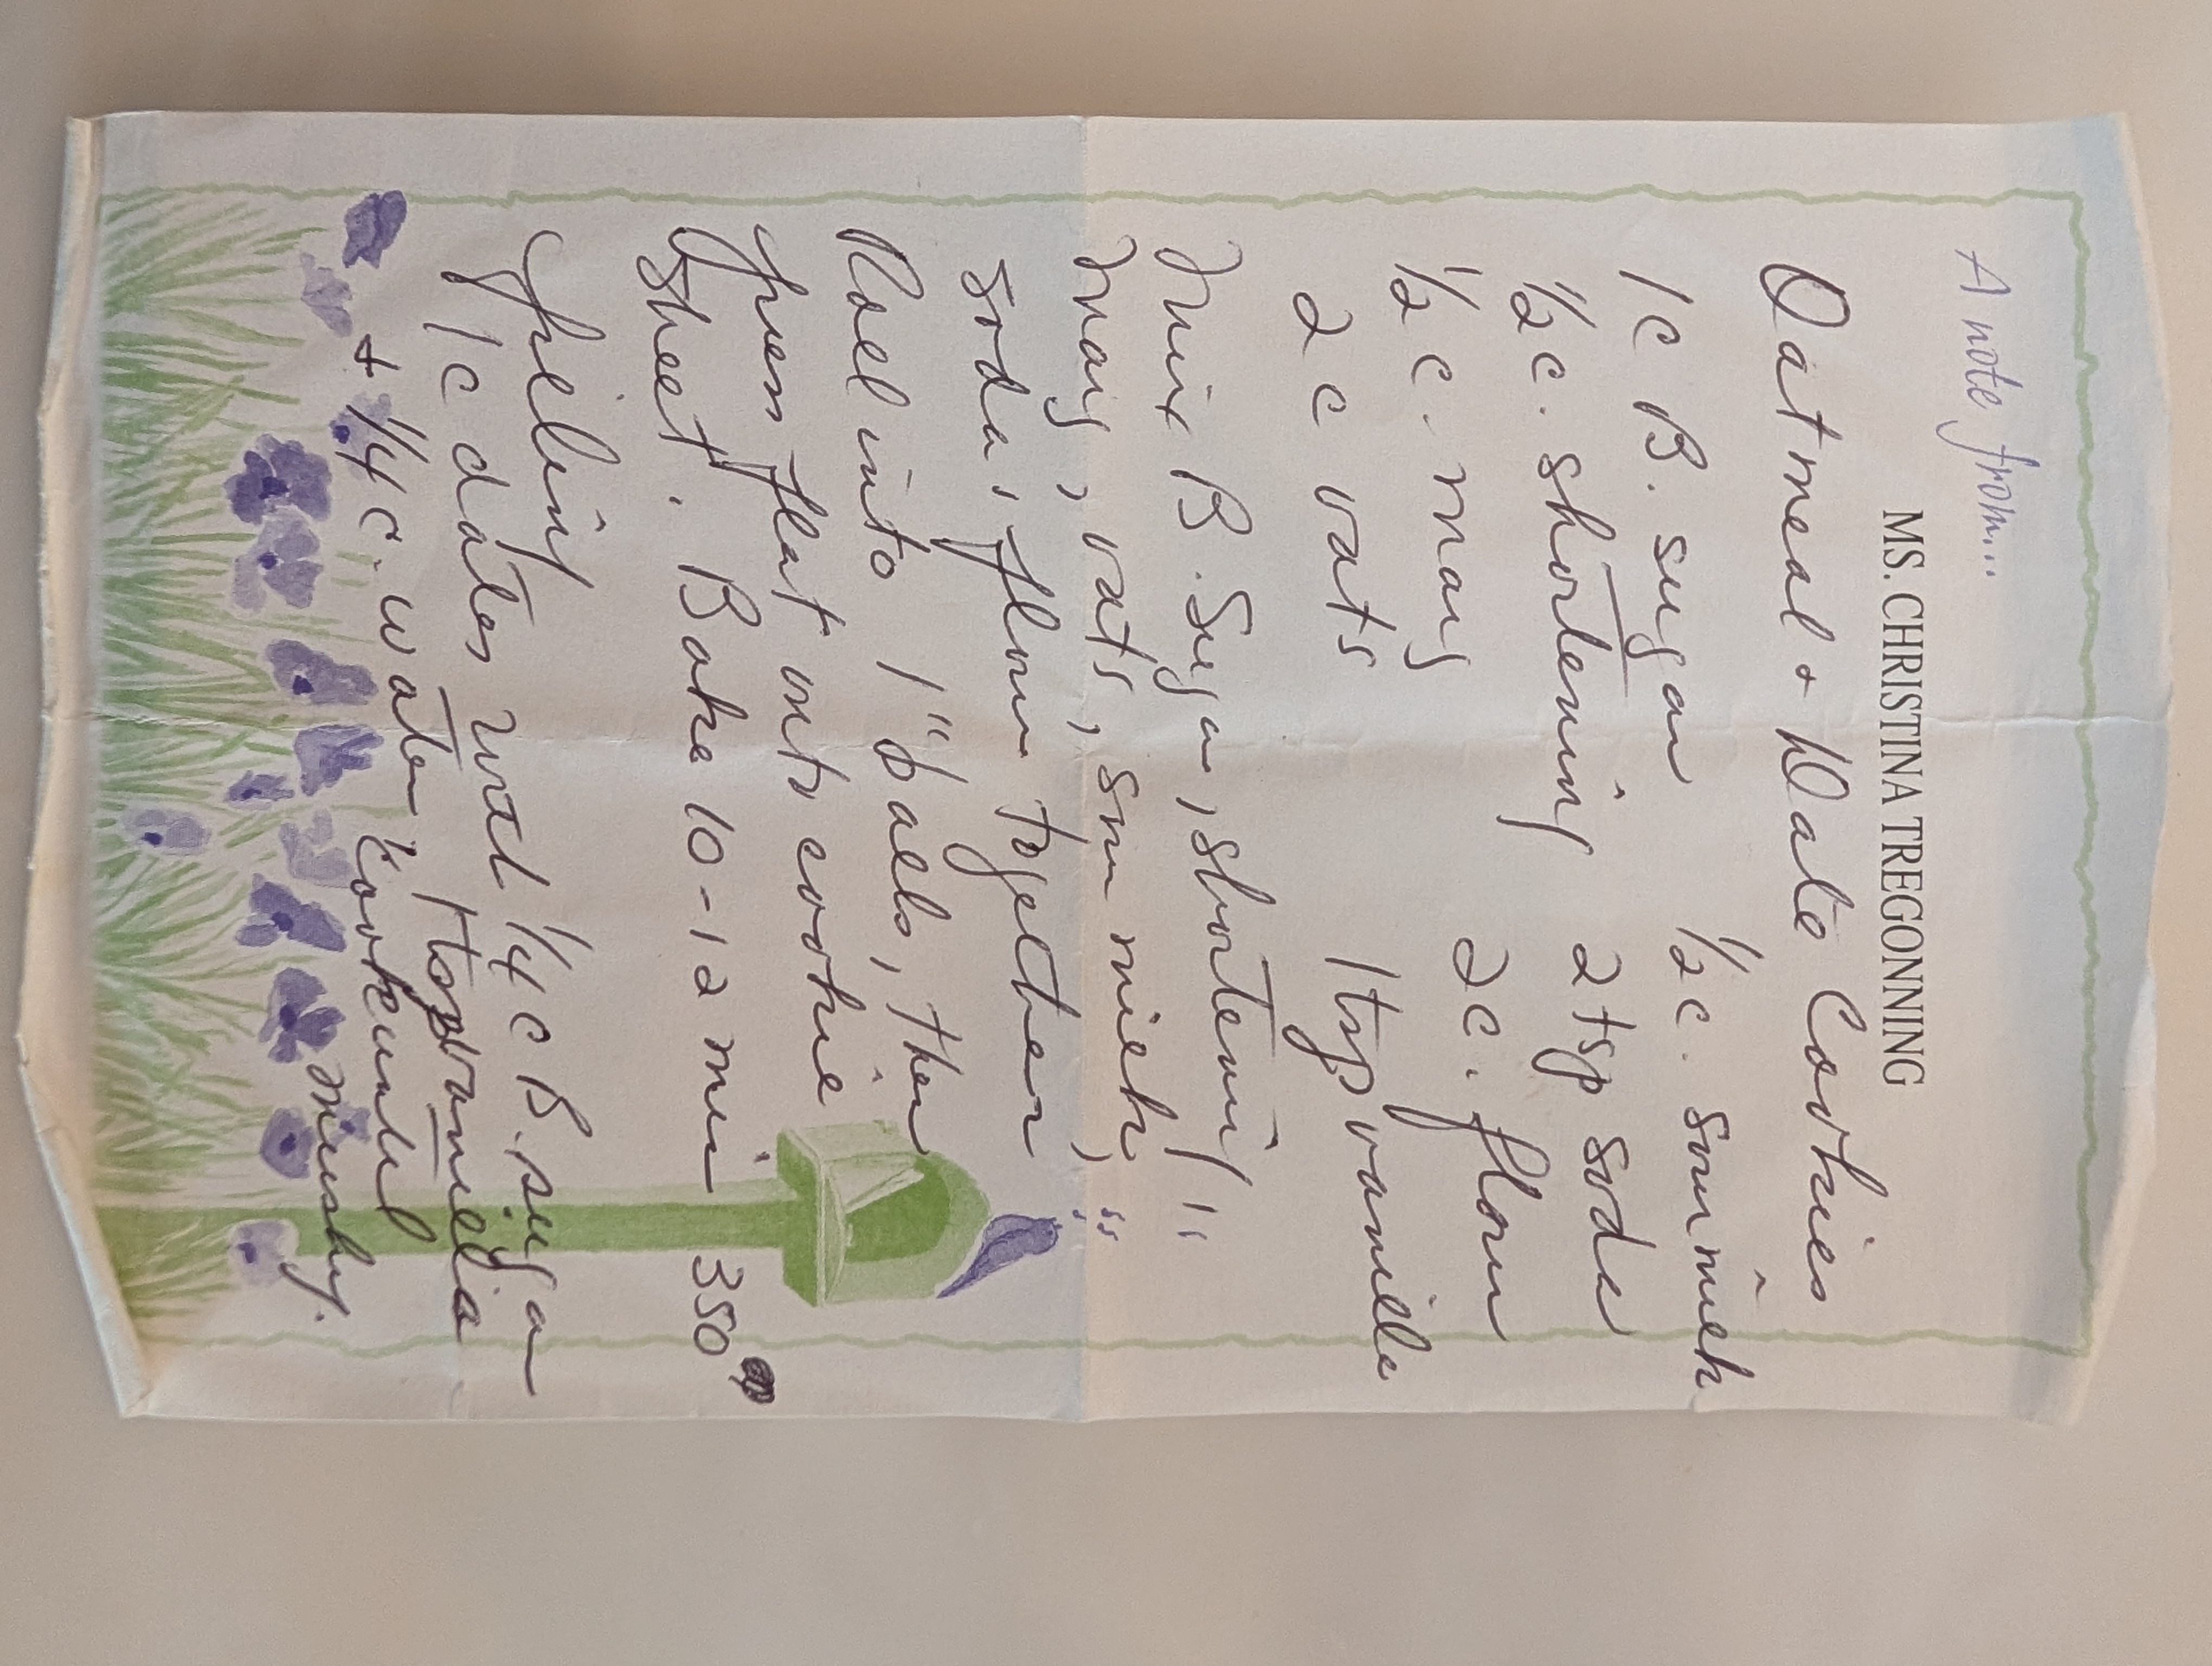 A note from...
MS. CHRISTINA TREGONNING
Oatmeal + Date Cookies
1c B. sugar 1/2 c. sour milk
1/2 c. shortening 2 tsp soda
1/2 c. marg 2c. flour
2 c oats 1 tsp vanilla
Mix B. Sugar, shortening,
marg, oats, sour milk,
soda, flour together
Roll into 1" balls, then
press flat onto cookie
sheet. Bake 10-12 min 350°
filling
1c dates with 1/4 c B. sugar
+ 1/4 c. water, 1 tsp vanilla
cook until
mushy.